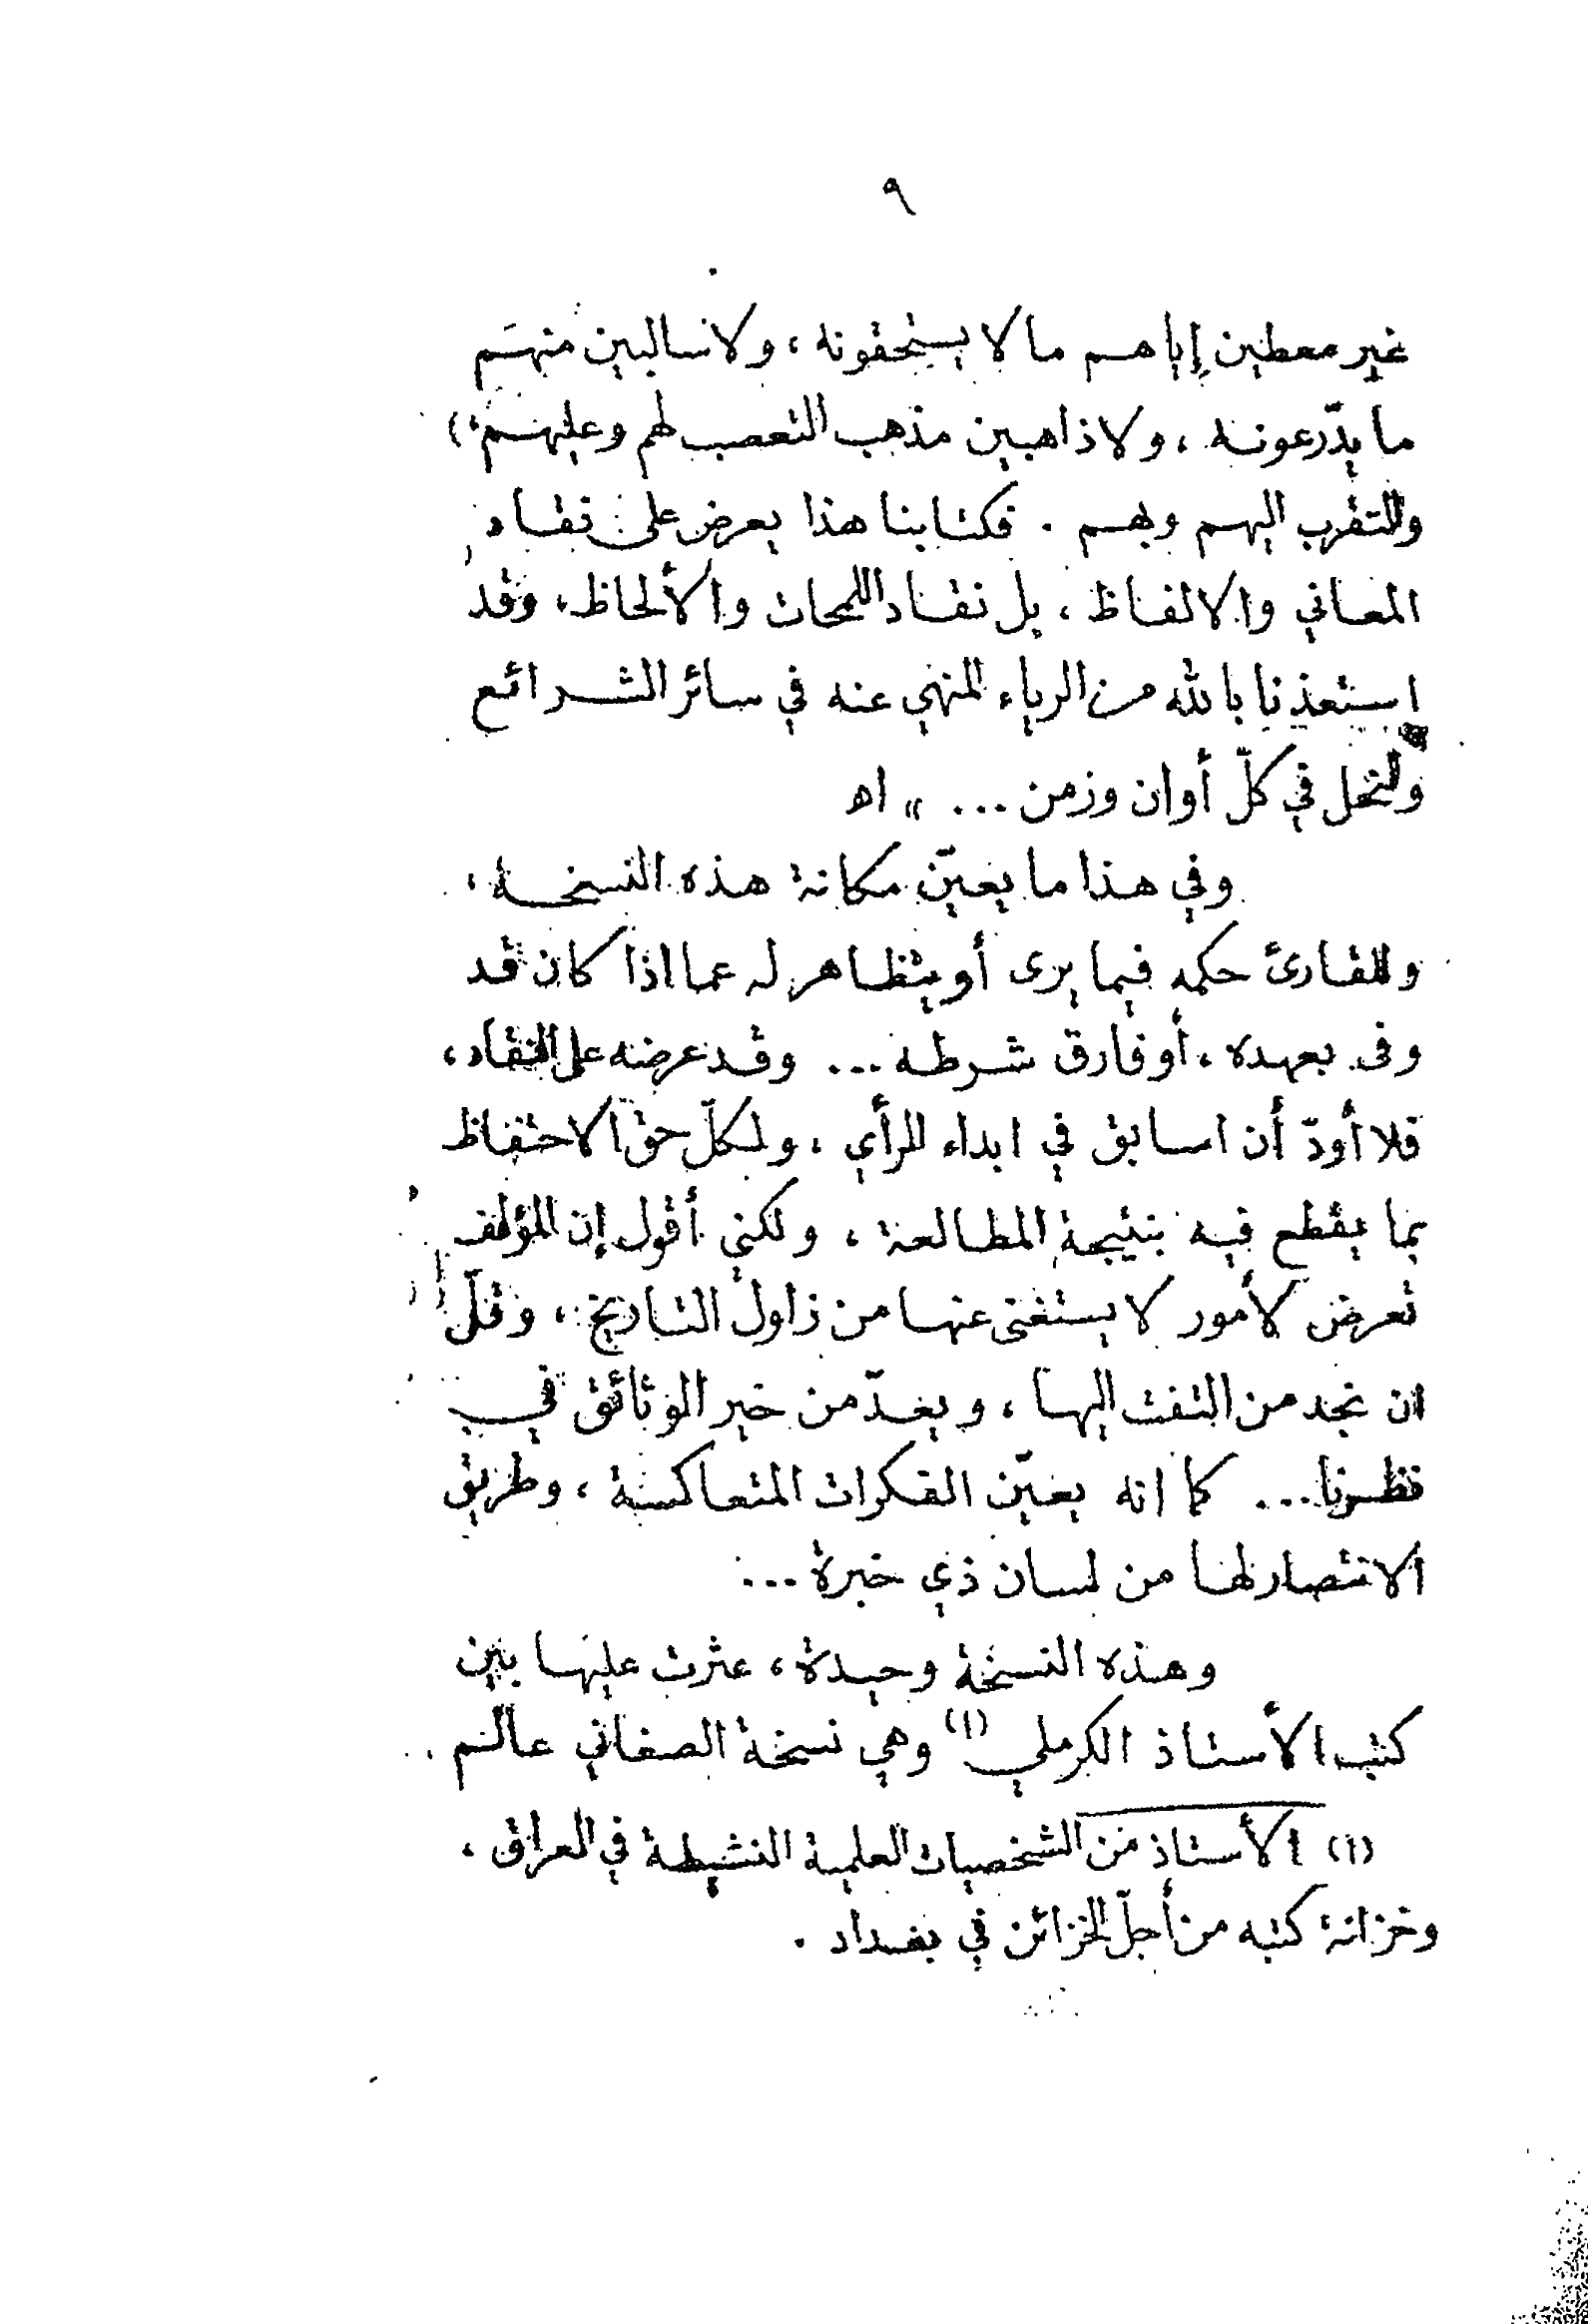 ٩
غير معطين إياهم ما لا يستحقونه ، ولا سالبين منهم
ما يدّرعونه ، ولا ذاهبين مذهب التعصب لهم وعليهم ،
والتقرب اليهم وبهم . فكتابنا هذا يعرض على نقاد
المعاني والالفاظ ، بل نقاد اللمحات والألحاظ ، وقد
استعذنا بالله من الرياء المنهي عنه في سائر الشرائع
والنحل في كلّ أوان وزمن ... » اه
وفي هذا ما يعيّن مكانة هذه النسخة ،
وللقارئ حكمه فيما يرى أو يتظاهر له عما اذا كان قد
وفى بعهده ، أو فارق شرطه ... وقد عرضه على النقاد ،
فلا أودّ أن اسابق في ابداء الرأي ، ولكلّ حق الاحتفاظ
بما يقطع فيه بنتيجة المطالعة ، ولكني أقول إن المؤلف
تعرض لأمور لا يستغنى عنها من زاول التاريخ ، وقلّ
ان نجد من التفت اليها ، ويعدّ من خير الوثائق في
نظرنا ... كما انه يعيّن الفكرات المتعاكسة ، وطريق
الانتصار لها من لسان ذي خبرة ...
وهذه النسخة وحيدة ، عثرت عليها بين
كتب الأستاذ الكرملي (١) وهي نسخة الصغاني عالم
(١) الأستاذ من الشخصيات العلمية النشيطة في العراق ،
وخزانة كتبه من أجلّ الخزائن في بغداد .